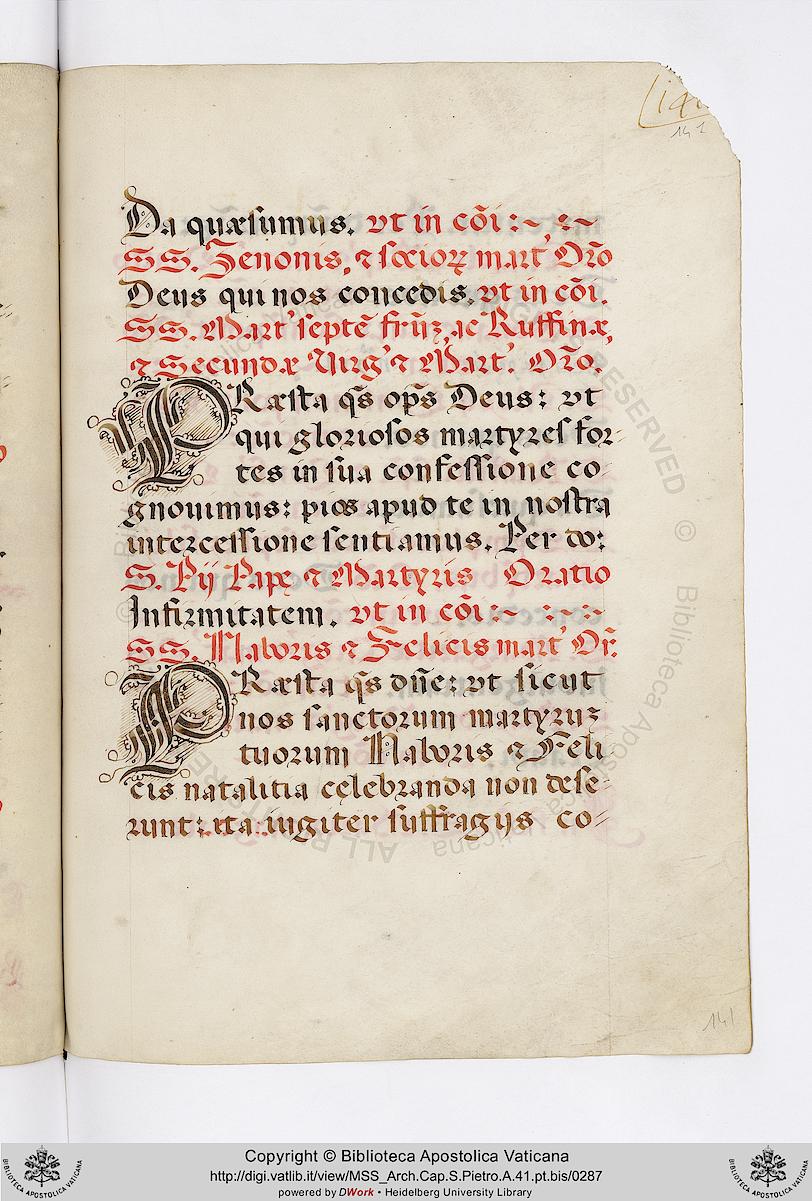 141
Da quæsumus. vt in cõi:~ :~
SS. Zenonis, ⁊ socioꝝ mart' Orõ
Deus qui nos concedis. vt in cõi.
SS. Mart' septẽ frũz, ac Ruffinæ,
⁊ Secundæ Virg' ⁊ Mart'. Orõ.
PRæsta q̃s op̃s Deus: vt
qui gloriosos martyres for-
tes in sua confessione co-
gnouimus: pios apud te in nostra
intercessione sentiamus. Per do:
S. Pij Papę ⁊ Martyris Oratio
Infirmitatem. vt in cõi:~ :~:~
SS. Naboris ⁊ Felicis mart' Or̃.
PRæsta q̃s dñe: vt sicut
nos sanctorum martyruz
tuorum Naboris ⁊ Feli
cis natalitia cęlebranda non dese-
runt: ita iugiter suffragijs co-
141
Copyright © Biblioteca Apostolica Vaticana
http://digi.vatlib.it/view/MSS_Arch.Cap.S.Pietro.A.41.pt.bis/0287
powered by DWork • Heidelberg University Library